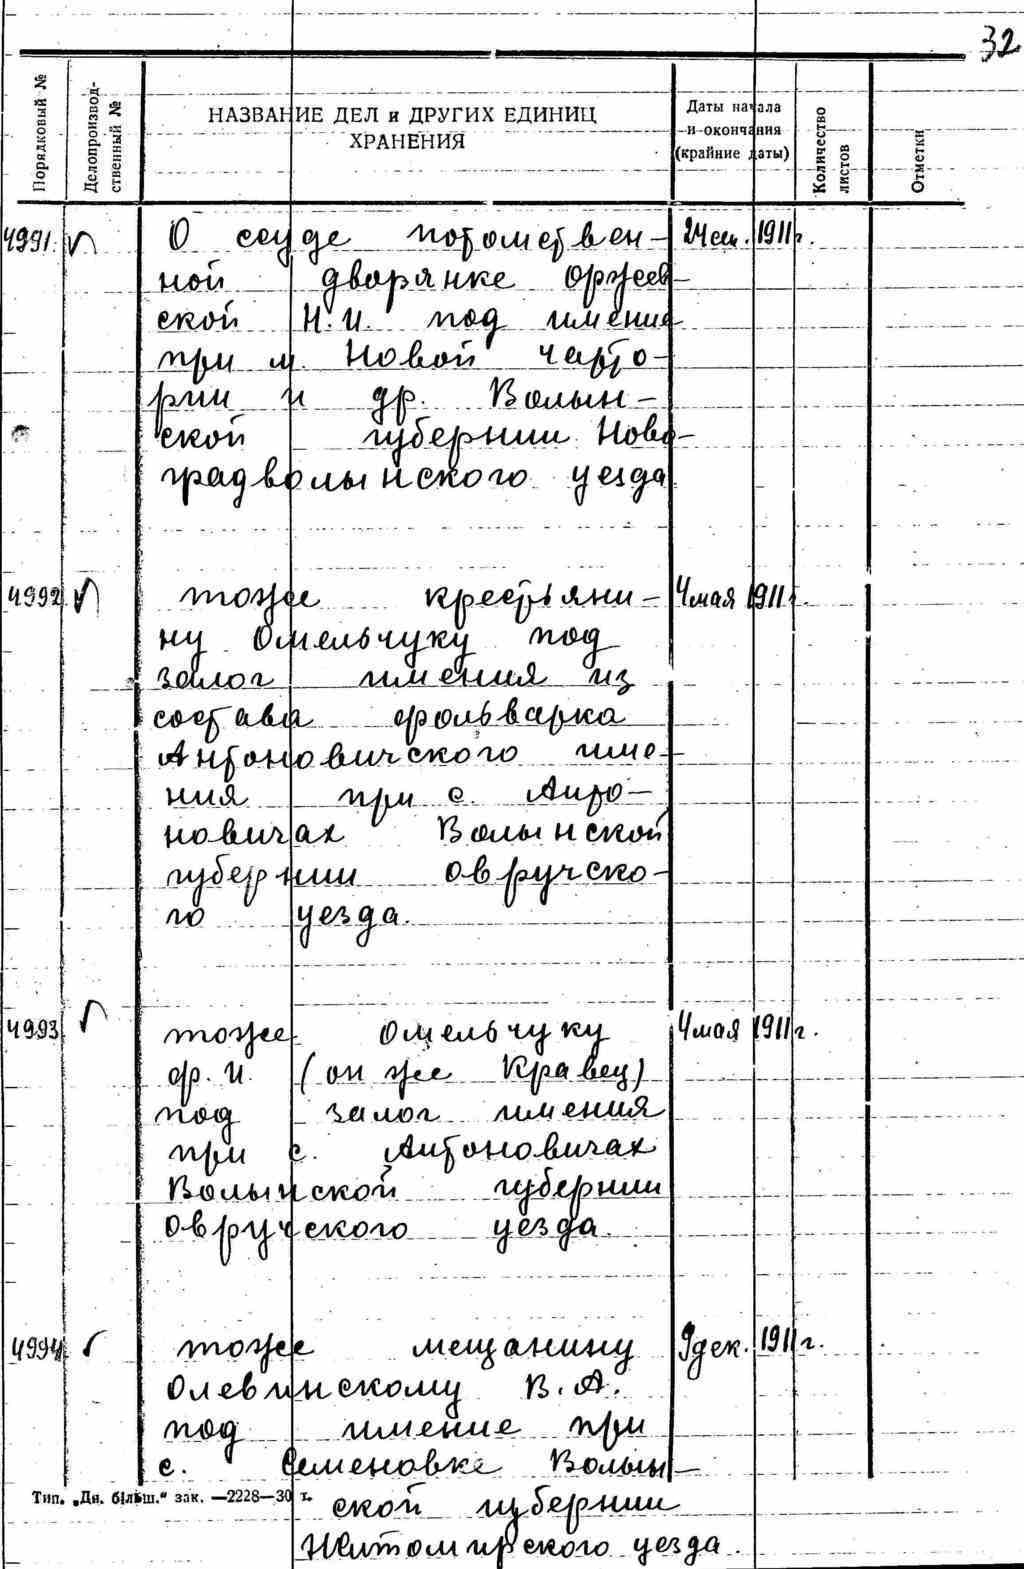 32
Порядковый №
Делопроизвод-
ственный №
НАЗВАНИЕ ДЕЛ и ДРУГИХ ЕДИНИЦ
ХРАНЕНИЯ
Даты начала
и окончания
(крайние даты)
Количество
листов
Отметки
4991. О ссуде потомствен- 24 сен. 1911 г.
ной дворянке Оржев-
ской Н.И. под имение
при м. Новой Чарто-
рии и др. Волын-
ской губернии Ново-
градволынского уезда
4992 тоже крестьяни- 4 мая 1911 г.
ну Омельчуку под
залог имения из
состава фольварка
Антоновичского име-
ния при с. Анто-
новичах Волынской
губернии Овручско-
го уезда.
4993 тоже Омельчуку 4 мая 1911 г.
Ф.И. (он же Кравец)
под залог имения
при с. Антоновичах
Волынской губернии
Овручского уезда.
4994 тоже мещанину 9 дек. 1911 г.
Олевинскому В.А.
под имение при
с. Семеновке Волын-
ской губернии
Житомирского уезда.
Тип. „Дн. більш." зак. —2228—30 т.